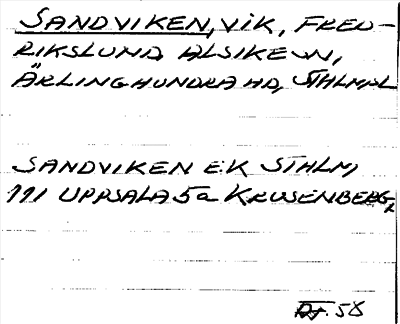 SANDVIKEN, VIK, FRED-
RIKSLUND, ALSIKE SN,
ÄRLINGHUNDRA HD, STHLM L
SANDVIKEN EK STHLM,
111 UPPSALA 5a KRUSENBERG,
58